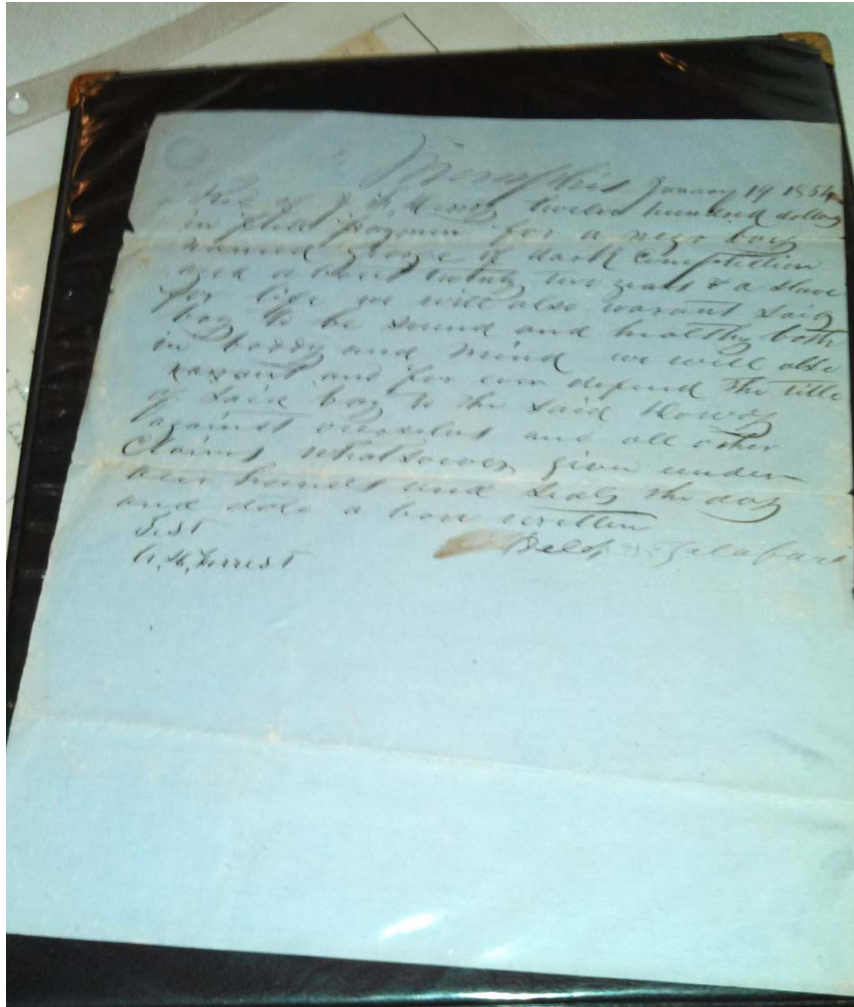 Memphis January 19 1854
twelve hundred dollars
in full for a negro boy
named of dark
and a bout twenty two years & a slave
for life we will also warant said
boy to be sound and healthy both
in boddy and mind we will also
warant and for ever defend the title
of said boy to the said
against and all other
Claims whatsoever given under
our hands and seals the day
and date a bove written
Test